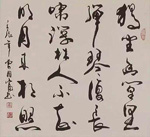 獨坐幽篁里
彈琴復長
嘯深林人不知
明月来相照